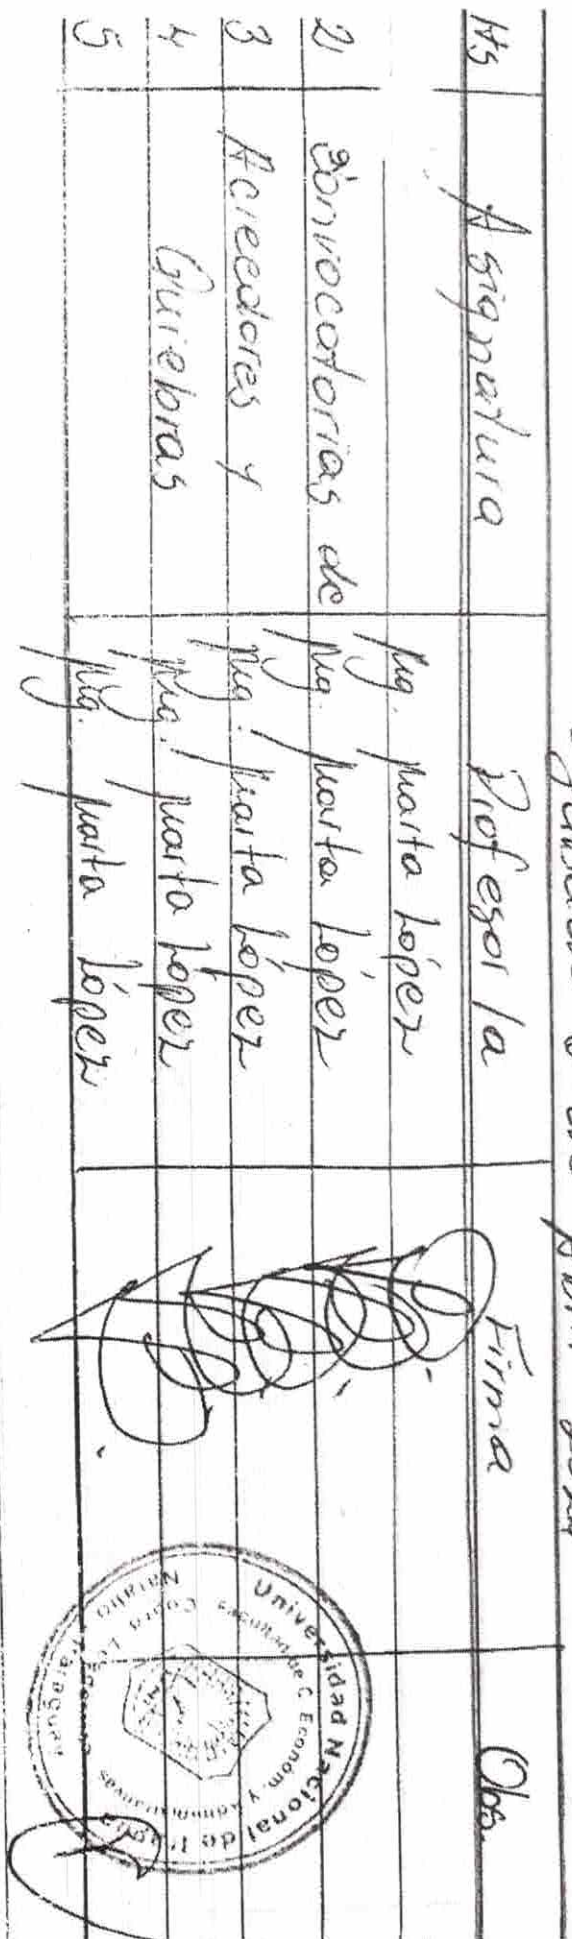 Hs Asignatura Profesor/a Firma Obs.
Mg. Marta López
2 Convocatorias de Mg. Marta López
3 Acreedores y Mg. Marta López
4 Quiebras Mg. Marta López
5 Mg. Marta López
Universidad Nacional de
Facultad de C. Econom. y Administrativas
Paraguay